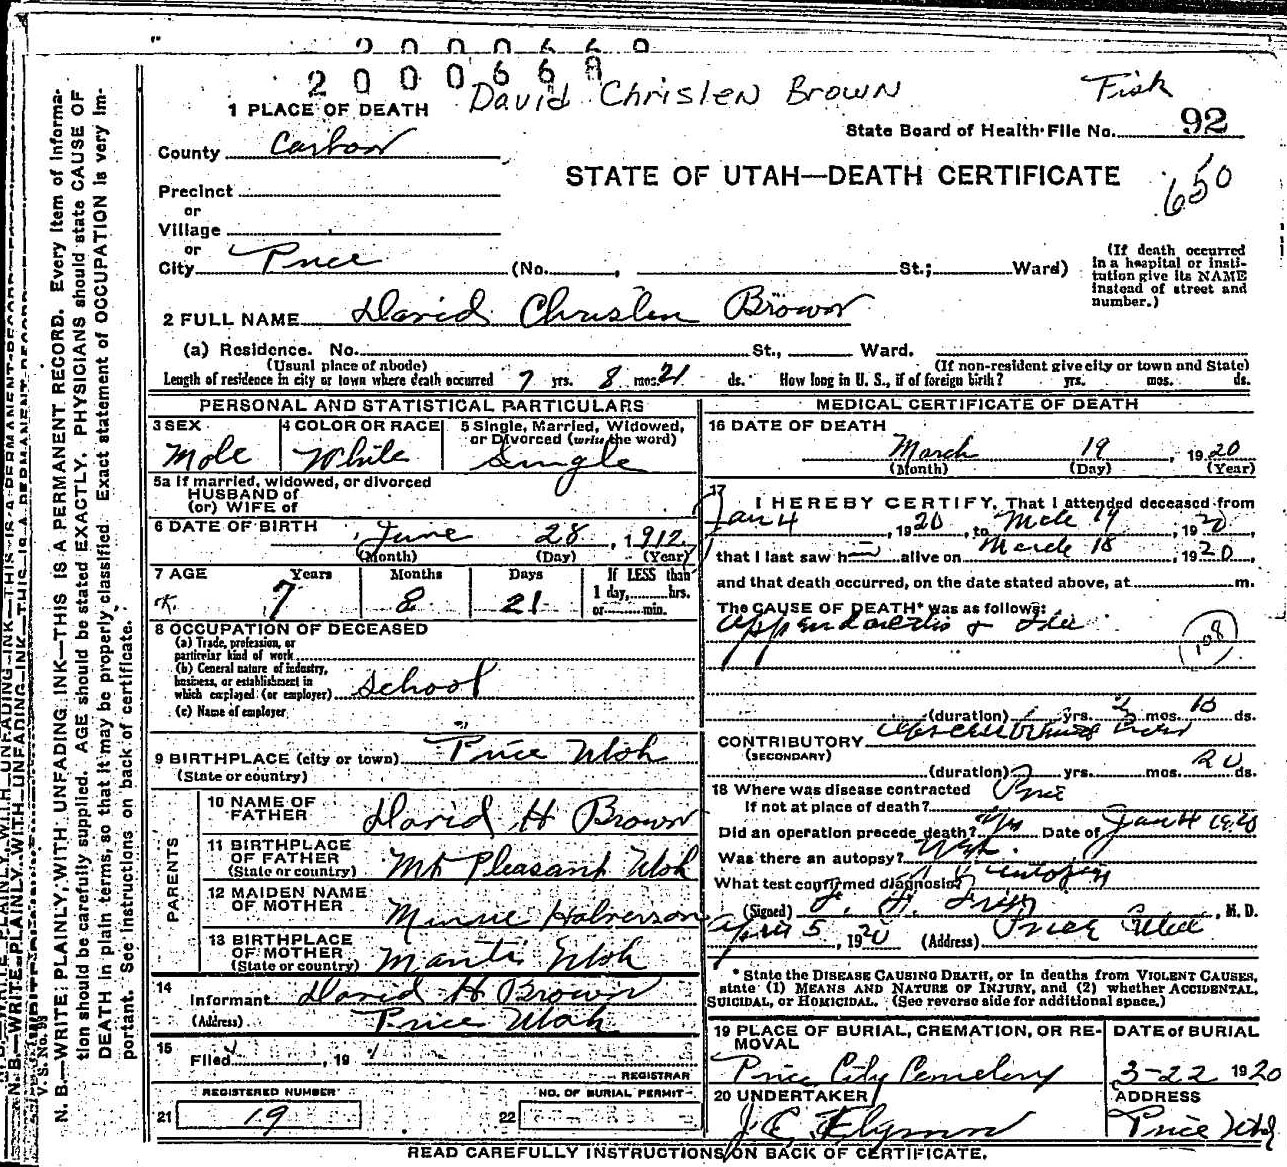 2000669
2000668
David Chrislen Brown
Fisk
1 PLACE OF DEATH
State Board of Health File No. 92
County Carbon
STATE OF UTAH—DEATH CERTIFICATE
650
Precinct
or
Village
or
City Price (No. , St.; Ward)
(If death occurred in a hospital or insti-
tution give its NAME
instead of street and
number.)
2 FULL NAME David Chrislen Brown
(a) Residence. No. St., Ward.
(Usual place of abode) (If non-resident give city or town and State)
Length of residence in city or town where death occurred 7 yrs. 8 mos. 21 ds. How long in U. S., if of foreign birth? yrs. mos. ds.
PERSONAL AND STATISTICAL PARTICULARS
3 SEX Male
4 COLOR OR RACE White
5 Single, Married, Widowed,
or Divorced (write the word)
Single
5a If married, widowed, or divorced
HUSBAND of
(or) WIFE of
6 DATE OF BIRTH June 28, 1912
(Month) (Day) (Year)
7 AGE Years Months Days If LESS than
1 day, hrs.
or min.
7 8 21
8 OCCUPATION OF DECEASED
(a) Trade, profession, or
particular kind of work
(b) General nature of industry,
business, or establishment in
which employed (or employer) School
(c) Name of employer
9 BIRTHPLACE (city or town) Price Utah
(State or country)
PARENTS
10 NAME OF
FATHER David H Brown
11 BIRTHPLACE
OF FATHER
(State or country) Mt Pleasant Utah
12 MAIDEN NAME
OF MOTHER Minnie Halverson
13 BIRTHPLACE
OF MOTHER
(State or country) Manti Utah
14 Informant David H Brown
(Address) Price Utah
15 Filed , 19
REGISTRAR
REGISTERED NUMBER
21 19
NO. OF BURIAL PERMIT
22
MEDICAL CERTIFICATE OF DEATH
16 DATE OF DEATH
March 19, 1920
(Month) (Day) (Year)
17 I HEREBY CERTIFY, That I attended deceased from
Jan 4, 1920, to Mch 19, 1920
that I last saw h alive on March 18, 1920
and that death occurred, on the date stated above, at m.
The CAUSE OF DEATH* was as follows:
Appendicitis &
108
(duration) yrs. 2 mos. 15 ds.
CONTRIBUTORY
(SECONDARY)
(duration) yrs. mos. 20 ds.
18 Where was disease contracted
if not at place of death? Price
Did an operation precede death? Yes Date of Jan 4 1920
Was there an autopsy?
What test confirmed diagnosis?
(Signed) , M. D.
April 5, 1920 (Address) Price Utah
*State the DISEASE CAUSING DEATH, or in deaths from VIOLENT CAUSES,
state (1) MEANS AND NATURE OF INJURY, and (2) whether ACCIDENTAL,
SUICIDAL, or HOMICIDAL. (See reverse side for additional space.)
19 PLACE OF BURIAL, CREMATION, OR RE-
MOVAL
Price City Cemetery
DATE of BURIAL
3-22 1920
20 UNDERTAKER
J. E. Flynn
ADDRESS
Price Utah
READ CAREFULLY INSTRUCTIONS ON BACK OF CERTIFICATE.
V. S. No. 98
N. B.—WRITE PLAINLY, WITH UNFADING INK—THIS IS A PERMANENT RECORD. Every item of informa-
tion should be carefully supplied. AGE should be stated EXACTLY. PHYSICIANS should state CAUSE OF
DEATH in plain terms, so that it may be properly classified. Exact statement of OCCUPATION is very im-
portant. See instructions on back of certificate.